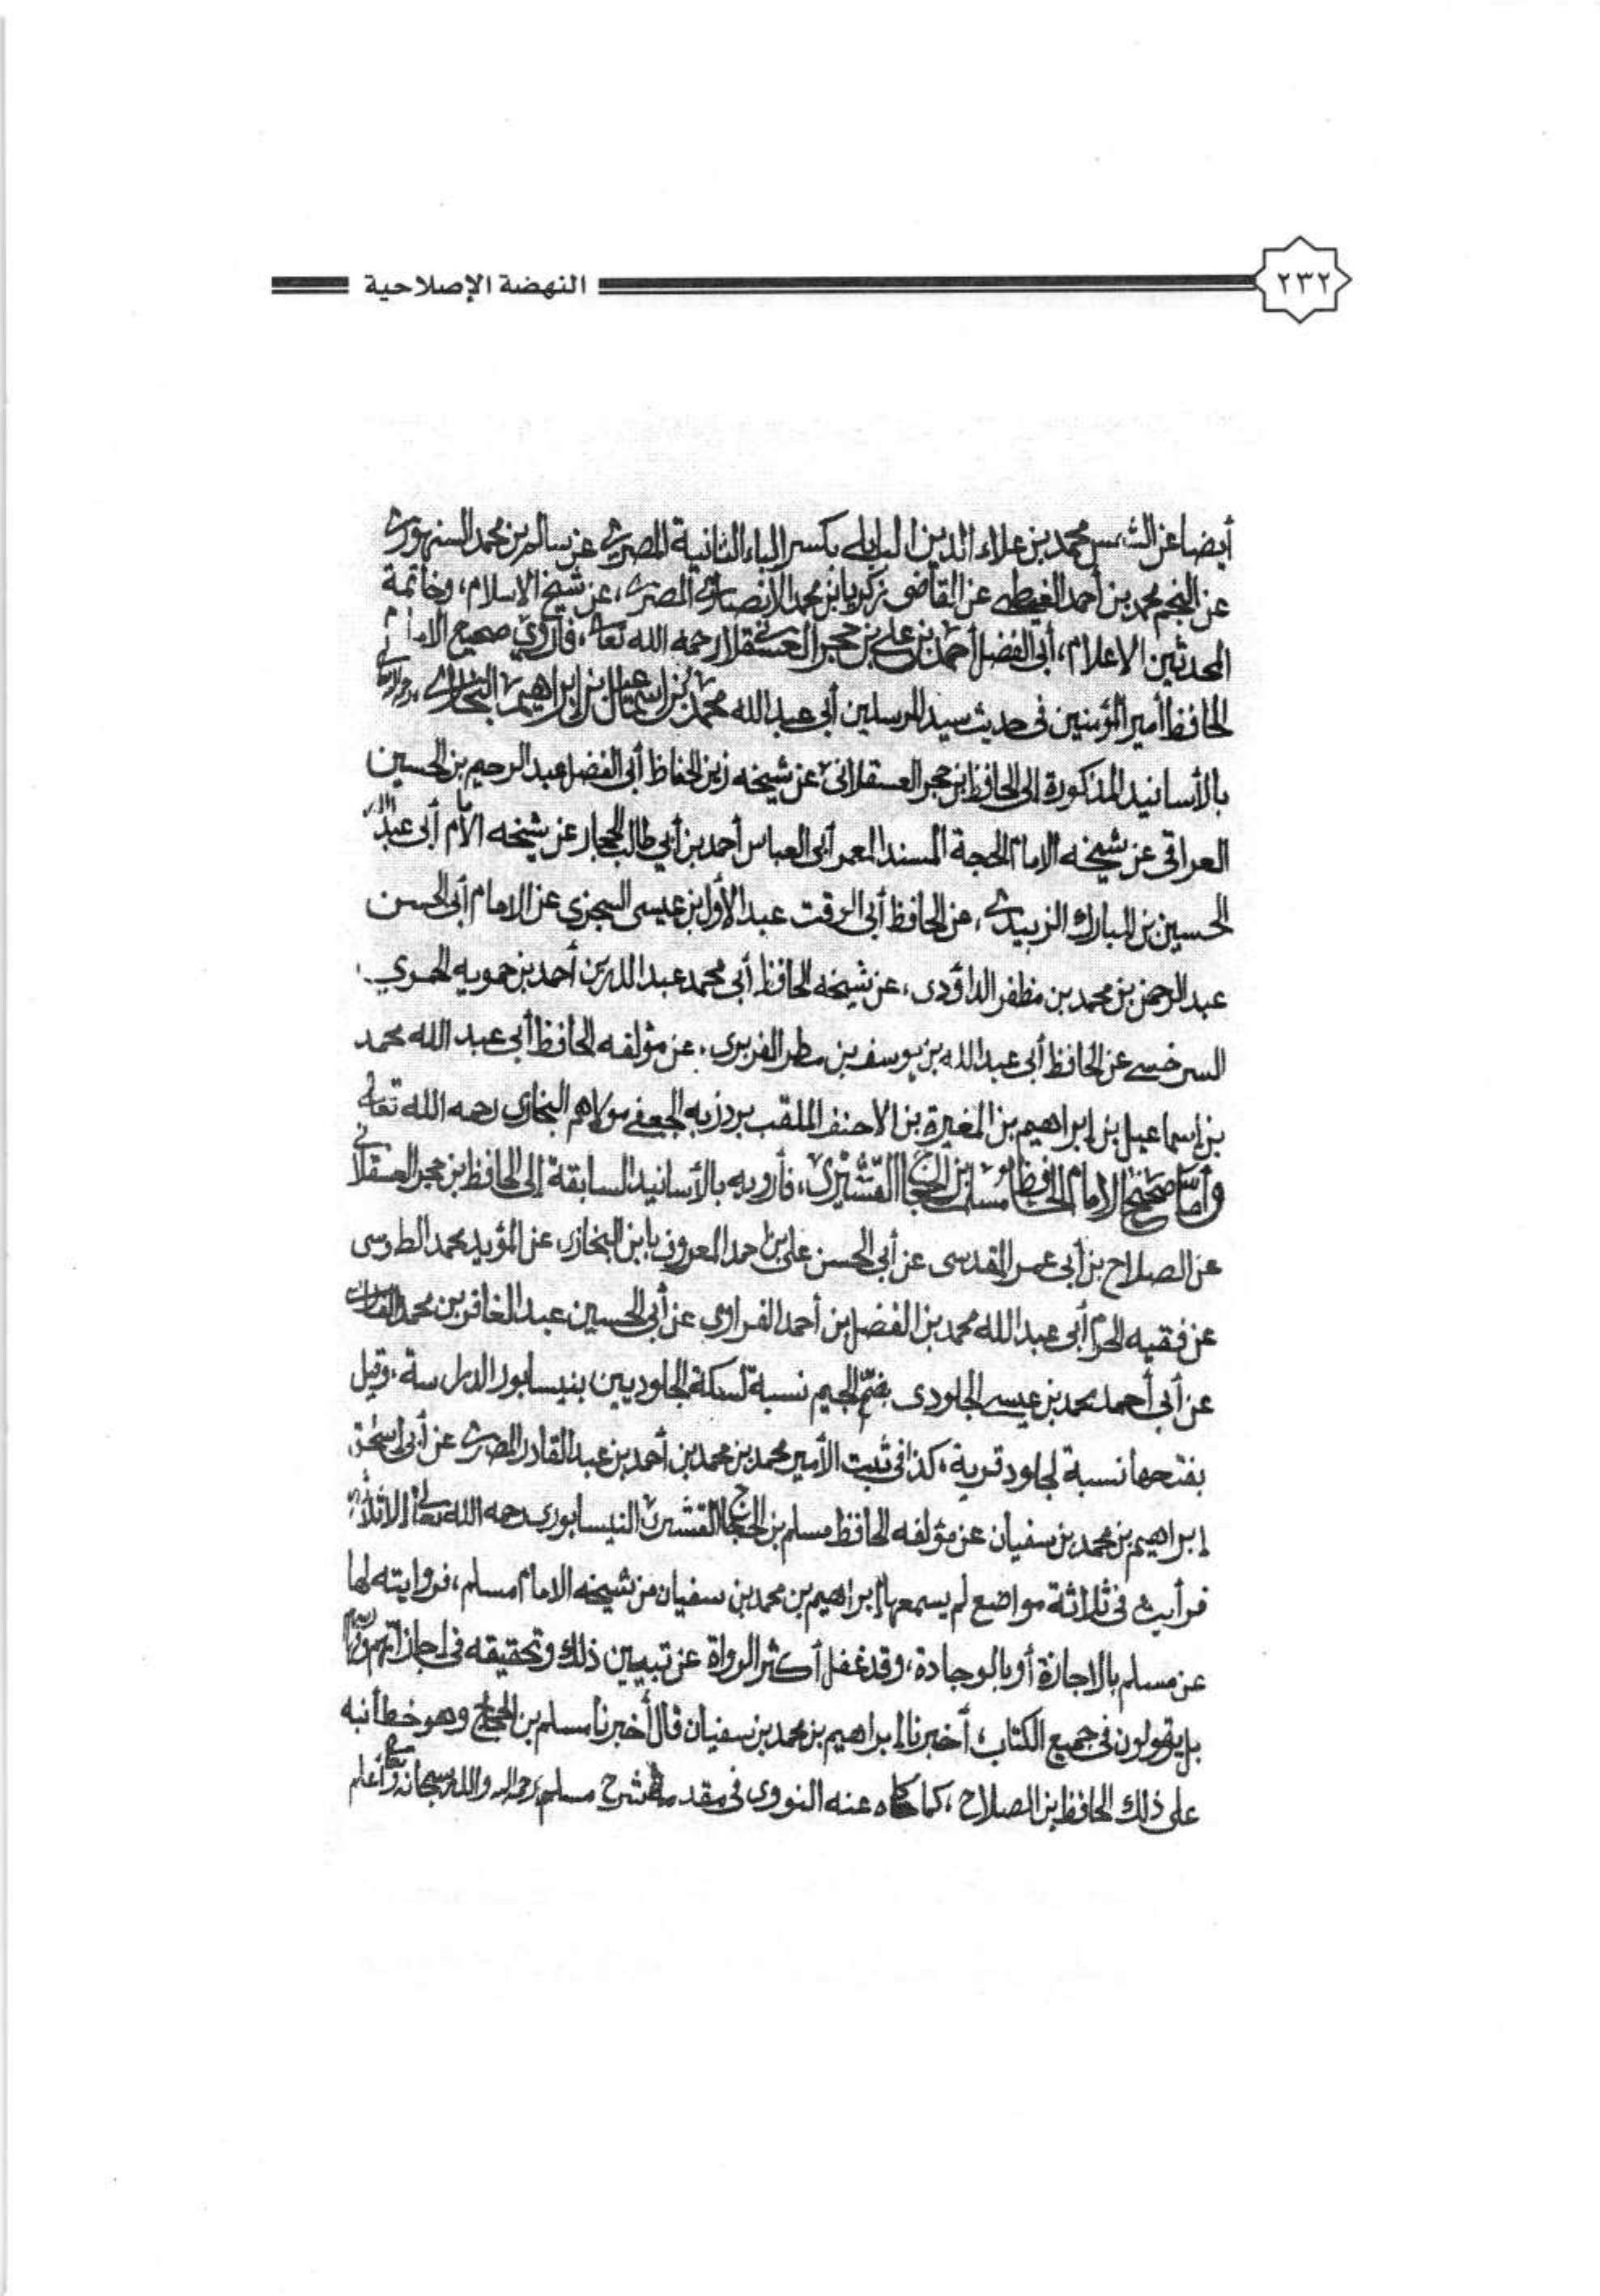 ٢٣٢ النهضة الإصلاحية
أيضا عن الشمس محمد بن علاء الدين البابلي بكسر الباء الثانية المصري عن سالم بن محمد السنهوري
عن النجم محمد بن أحمد الغيطي عن القاضي زكريا بن محمد الأنصاري المصري، عن شيخ الاسلام، وخاتمة
المحدثين الاعلام، أبي الفضل أحمد بن علي بن حجر العسقلاني رحمه الله تعالى، فأروي صحيح الامام
الحافظ أمير المؤمنين في حديث سيد المرسلين أبي عبد الله محمد بن إسماعيل بن إبراهيم البخاري،
بالأسانيد المذكورة إلى الحافظ بن حجر العسقلاني عن شيخه زين الحفاظ أبي الفضل عبد الرحيم بن الحسين
العراقي عن شيخه الامام الحجة المسند المعمر أبي العباس أحمد بن أبي طالب الحجار عن شيخه الامام أبي عبد الله
الحسين بن المبارك الزبيدي، عن الحافظ أبي الوقت عبد الأول بن عيسى السجزي عن الامام أبي الحسن
عبد الرحمن بن محمد بن مظفر الداؤدي، عن شيخه الحافظ أبي محمد عبد الله بن أحمد بن حمويه الحموي
السرخسي عن الحافظ أبي عبد الله بن يوسف بن مطر الفربري، عن مؤلفه الحافظ أبي عبد الله محمد
بن إسماعيل بن إبراهيم بن المغيرة بن الاحنف الملقب بردزبه الجعفي مولاهم البخاري رحمه الله تعالى
وأما صحيح الامام الحافظ مسلم بن الحجاج القشيري، فأرويه بالأسانيد السابقة إلى الحافظ بن حجر العسقلاني
عن الصلاح بن أبي عمر المقدسي عن أبي الحسن علي بن احمد المعروف بابن البخاري عن المؤيد محمد الطوسي
عن فقيه الحرم أبي عبد الله محمد بن الفضل بن أحمد الفراوي عن أبي الحسين عبد الغافر بن محمد الفارسي
عن أبي أحمد محمد بن عيسى الجلودي بضم الجيم نسبة لسكة الجلوديين بنيسابور الدارسة، وقيل
بفتحها نسبة لجلود قرية، كذا في ثبت الأمير محمد بن محمد بن أحمد بن عبد القادر المصري عن أبي اسحق
إبراهيم بن محمد بن سفيان عن مؤلفه الحافظ مسلم بن الحجاج القشيري النيسابوري رحمه الله تعالى إلا ثلاثة
فرأيت في ثلاثة مواضع لم يسمعها إبراهيم بن محمد بن سفيان من شيخه الامام مسلم، فروايته لها
عن مسلم بالاجازة أو بالوجادة، وقد غفل أكثر الرواة عن تبيين ذلك وتحقيقه في اجازاتهم
بل يقولون في جميع الكتاب أخبرنا إبراهيم بن محمد بن سفيان قال أخبرنا مسلم بن الحجاج وهو خطأ نبه
على ذلك الحافظ بن الصلاح، كما حكاه عنه النووي في مقدمة شرح مسلم رحمه الله والله سبحانه وتعالى أعلم